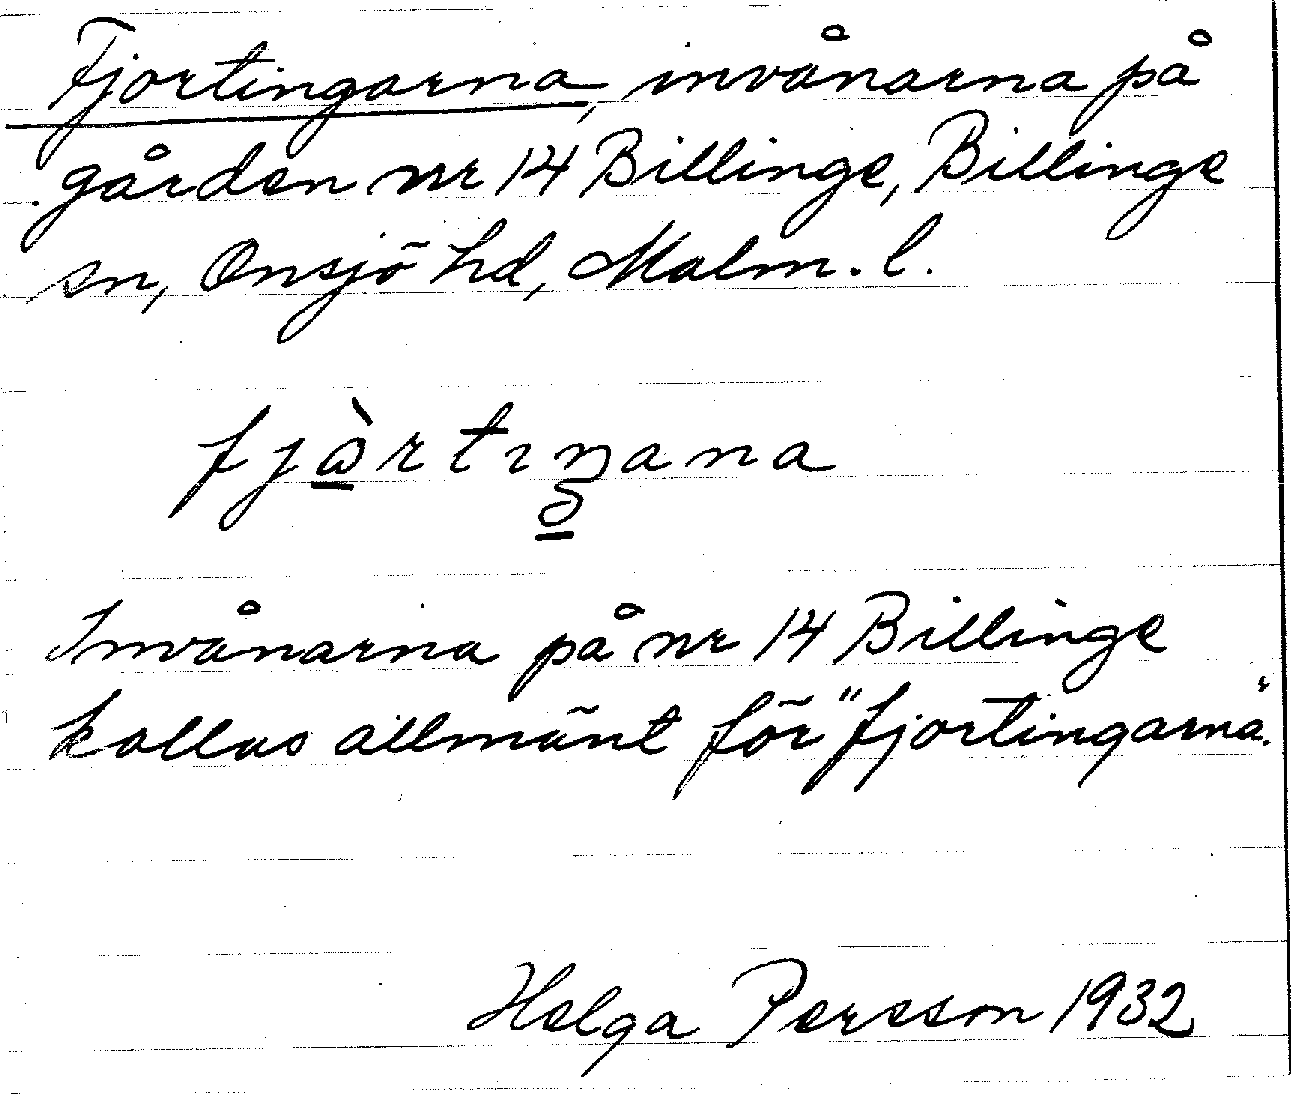 Fjortingarna, invånarna på
gården nr 14 Billinge, Billinge
sn, Onsjö hd, Malm. l.
Invånarna på nr 14 Billinge
kallas allmänt för "fjortingarna".
Helga Persson 1932